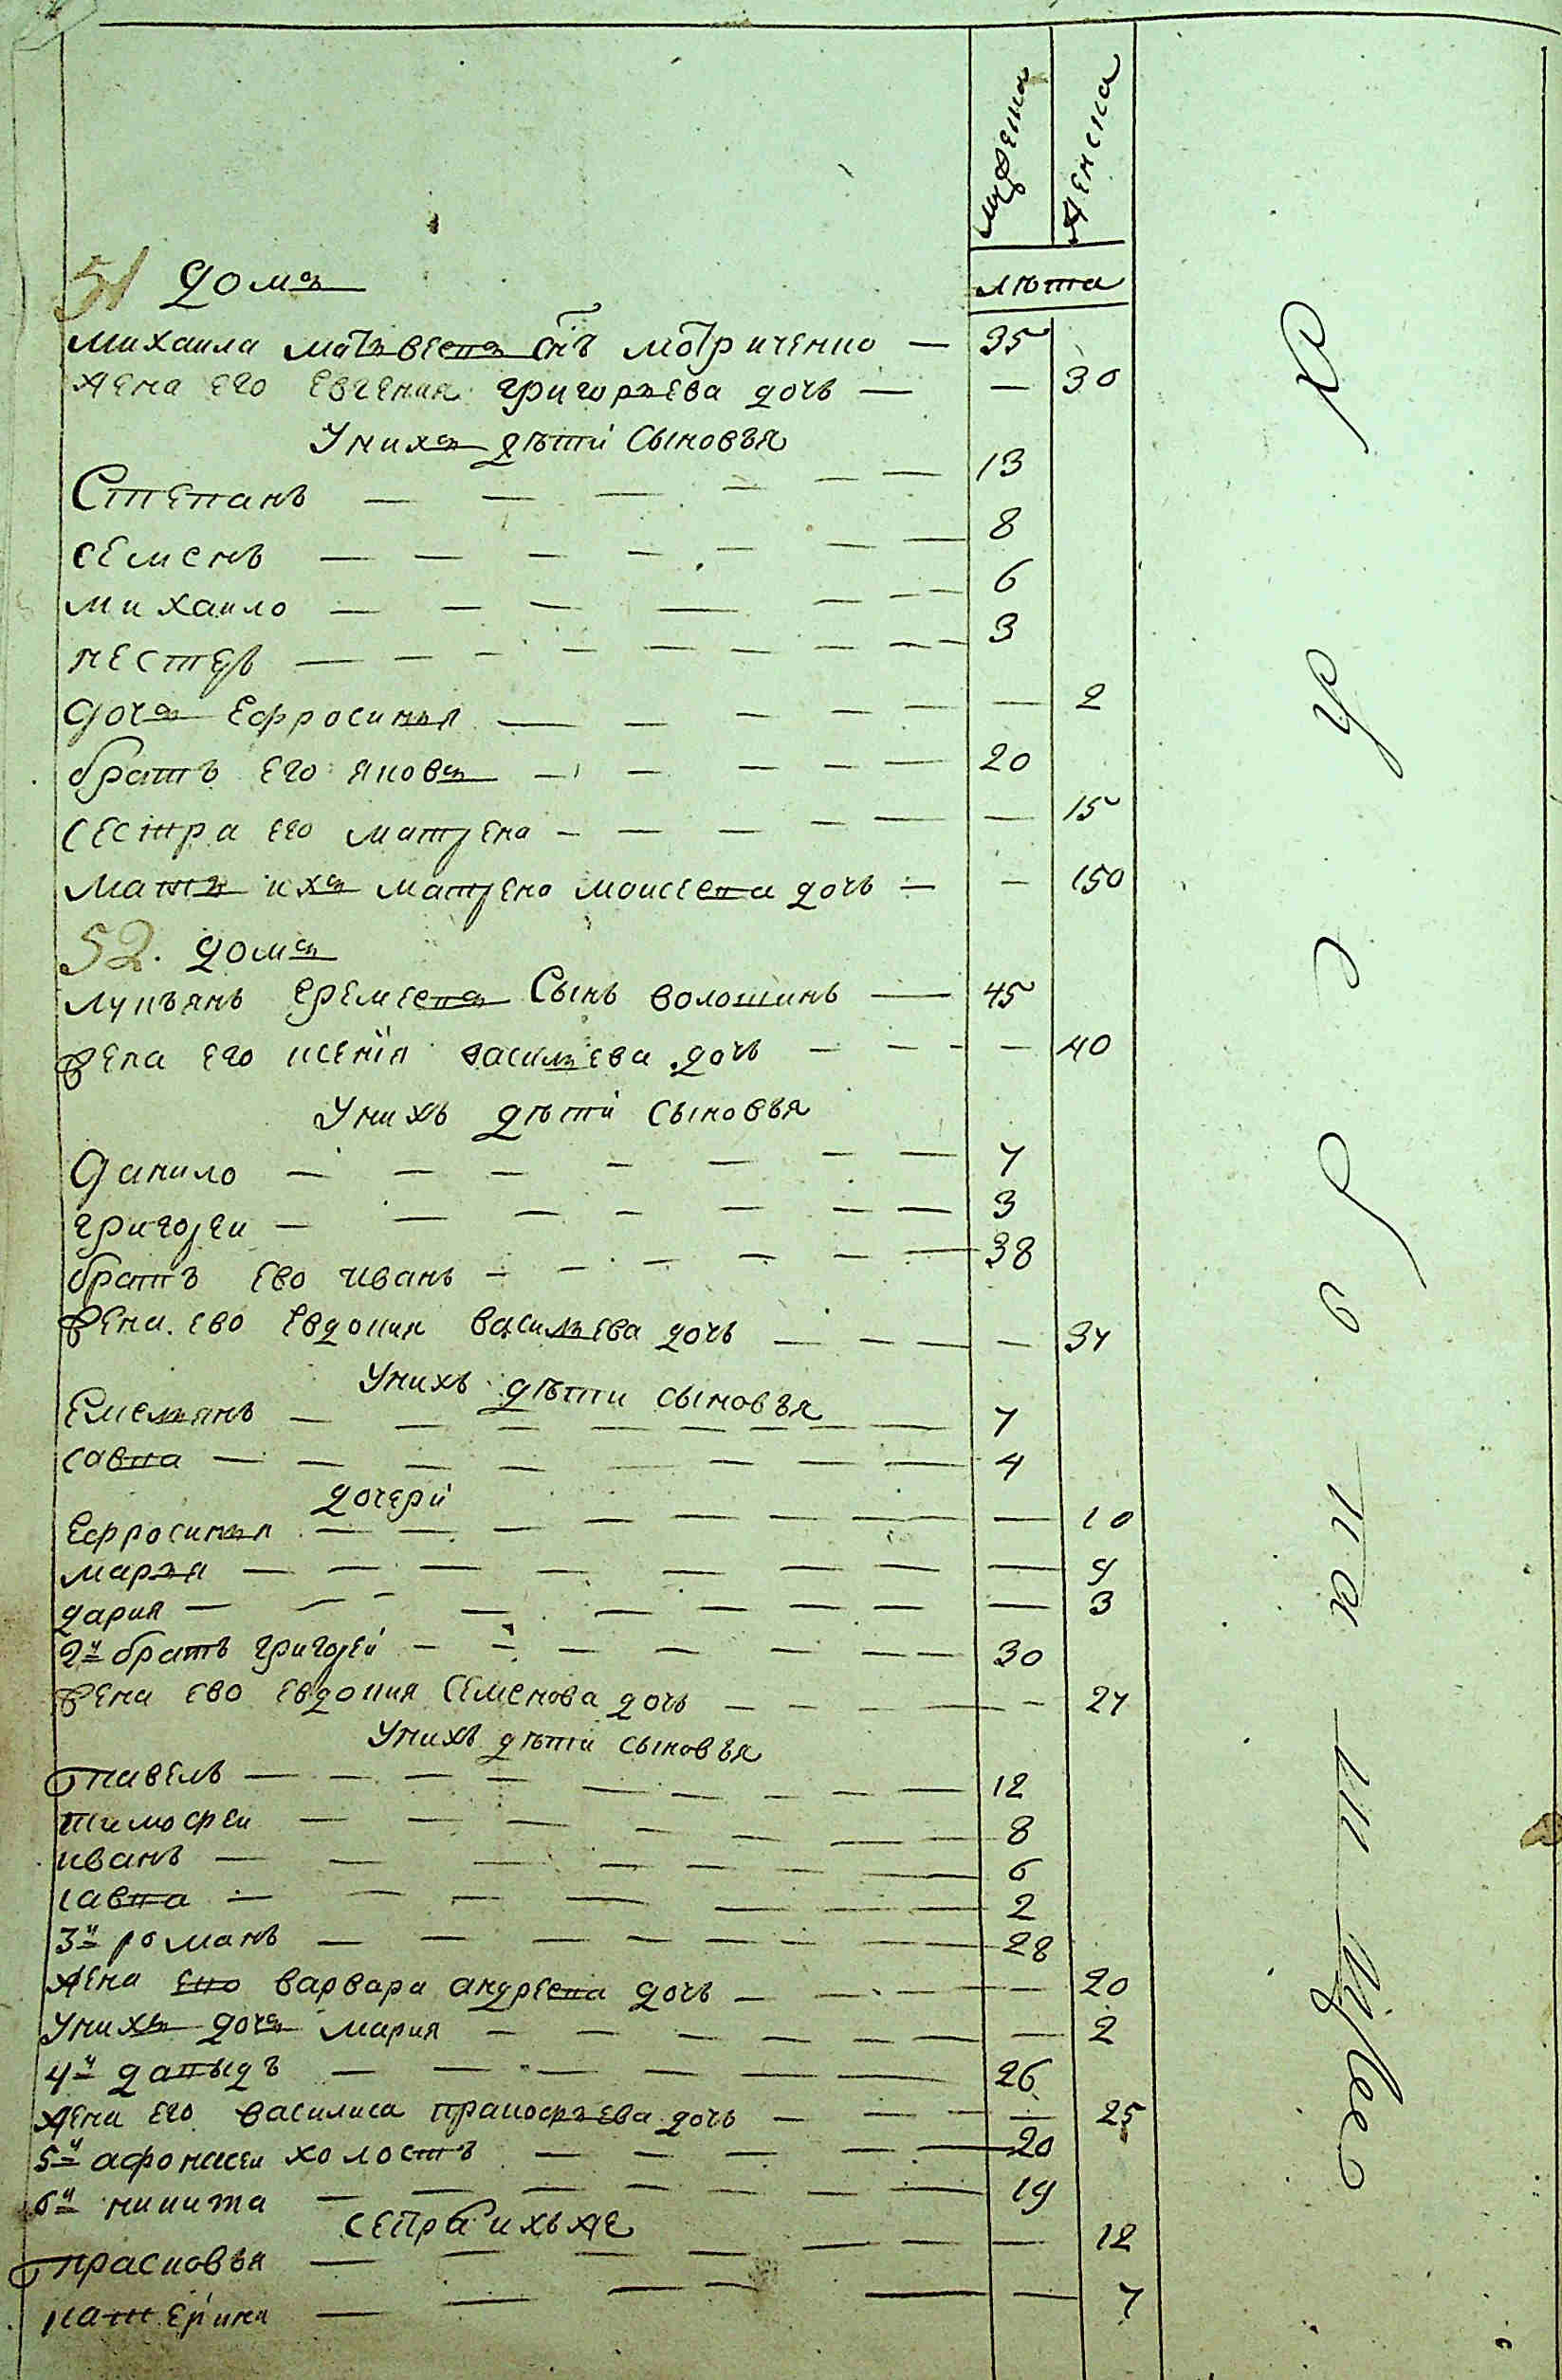 мужеска женска
лѣта
51 домъ
михаила матъвеевъ снъ мотриченко — 35
жена его евгения григоръева дочь — — 30
унихъ дѣти сыновъя
Степанъ — 13
семенъ — 8
михаило — 6
нестеръ — 3
дочъ ефросинъя — — 2
братъ его яковъ — 20
сестра его матрена — — 15
матъ ихъ матрена моисеева дочь — — 150
52. домъ
лукъянъ еремеевъ Сынъ волошинъ — 45
жена его ксенія василъева дочь — — 40
унихъ дѣти сыновъя
данило — 7
григореи — 3
братъ ево иванъ — 38
жена ево евдокия василъева дочь — — 37
унихъ дѣти сыновъя
Емелъянъ — 7
савва — 4
дочери
Ефросинъя — — 10
маръя — — 9
дария — — 3
2й братъ григореи — 30
жена ево евдокия семенова дочь — — 27
унихъ дѣти сыновъя
павелъ — 12
тимофеи — 8
иванъ — 6
савва — 2
3й романъ — 28
жена ево варвара андреева дочь — — 20
унихъ дочъ мария — — 2
4й давыдъ — 26
жена его василиса пракофъева дочь — — 25
5й афонасеи холостъ — 20
6й никита — 19
сестра ихъ же
прасковъя — — 12
катерина — — 7